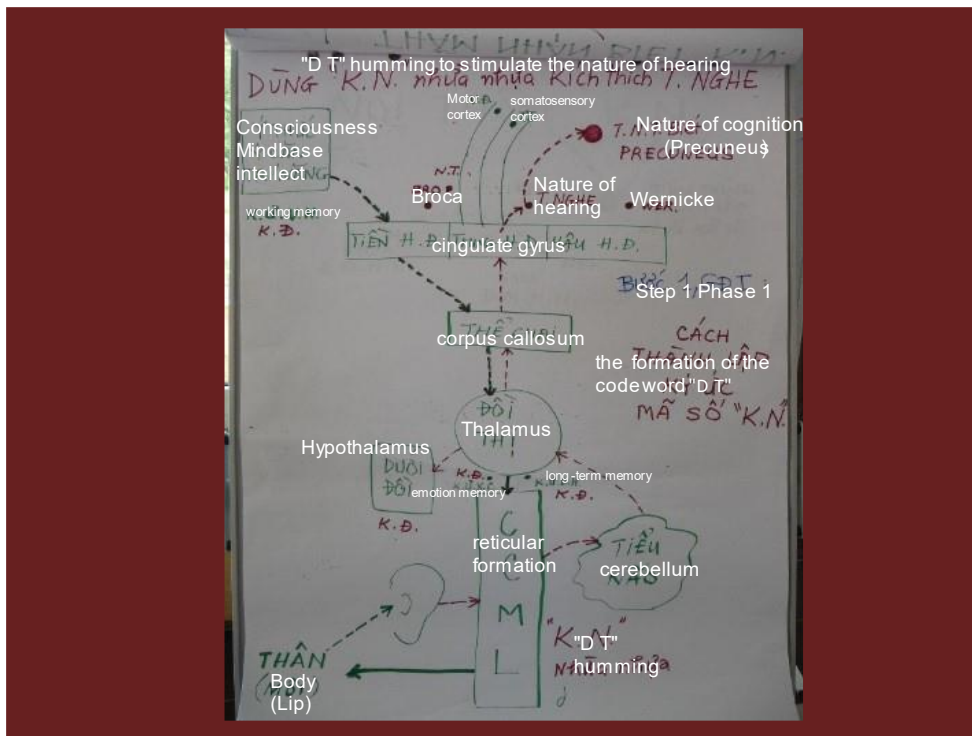 "D T" humming to stimulate the nature of hearing
DÙNG "K.N." nhừa nhựa KÍCH THÍCH T. NGHE
Motor
cortex
somatosensory
cortex
Consciousness
Mindbase
intellect
Nature of cognition
(Precuneus)
PRECUNEUS
N.T.
Broca
Nature of
hearing
T. NGHE
Wernicke
working memory
K.Đ.
TIỀN H.Đ.
HẬU H.Đ.
cingulate gyrus
Step 1, Phase 1
corpus callosum
CÁCH
the formation of the
codeword "D T"
MÃ SỐ "K.N."
ĐỒI
Thalamus
THỊ
Hypothalamus
DƯỚI
ĐỒI
K.Đ.
K.Đ.
long-term memory
emotion memory
K.Đ.
C
reticular
formation
C
M
L
TIỂU
cerebellum
NÃO
"K.N."
"D T"
humming
THÂN
Body
(Lip)